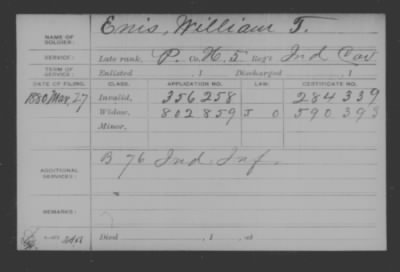 NAME OF SOLDIER: Enis, William T.
SERVICE: Late rank, P. Co. H. 5 Reg't Ind Cav
TERM OF SERVICE: Enlisted , 1 Discharged , 1
DATE OF FILING. CLASS. APPLICATION NO. LAW. CERTIFICATE NO.
1880 Mar, 27 Invalid, 356258 284339
Widow, 802859 J O 590393
Minor,
ADDITIONAL SERVICES: B 76 Ind. Inf.
REMARKS:
Died , 1 , at